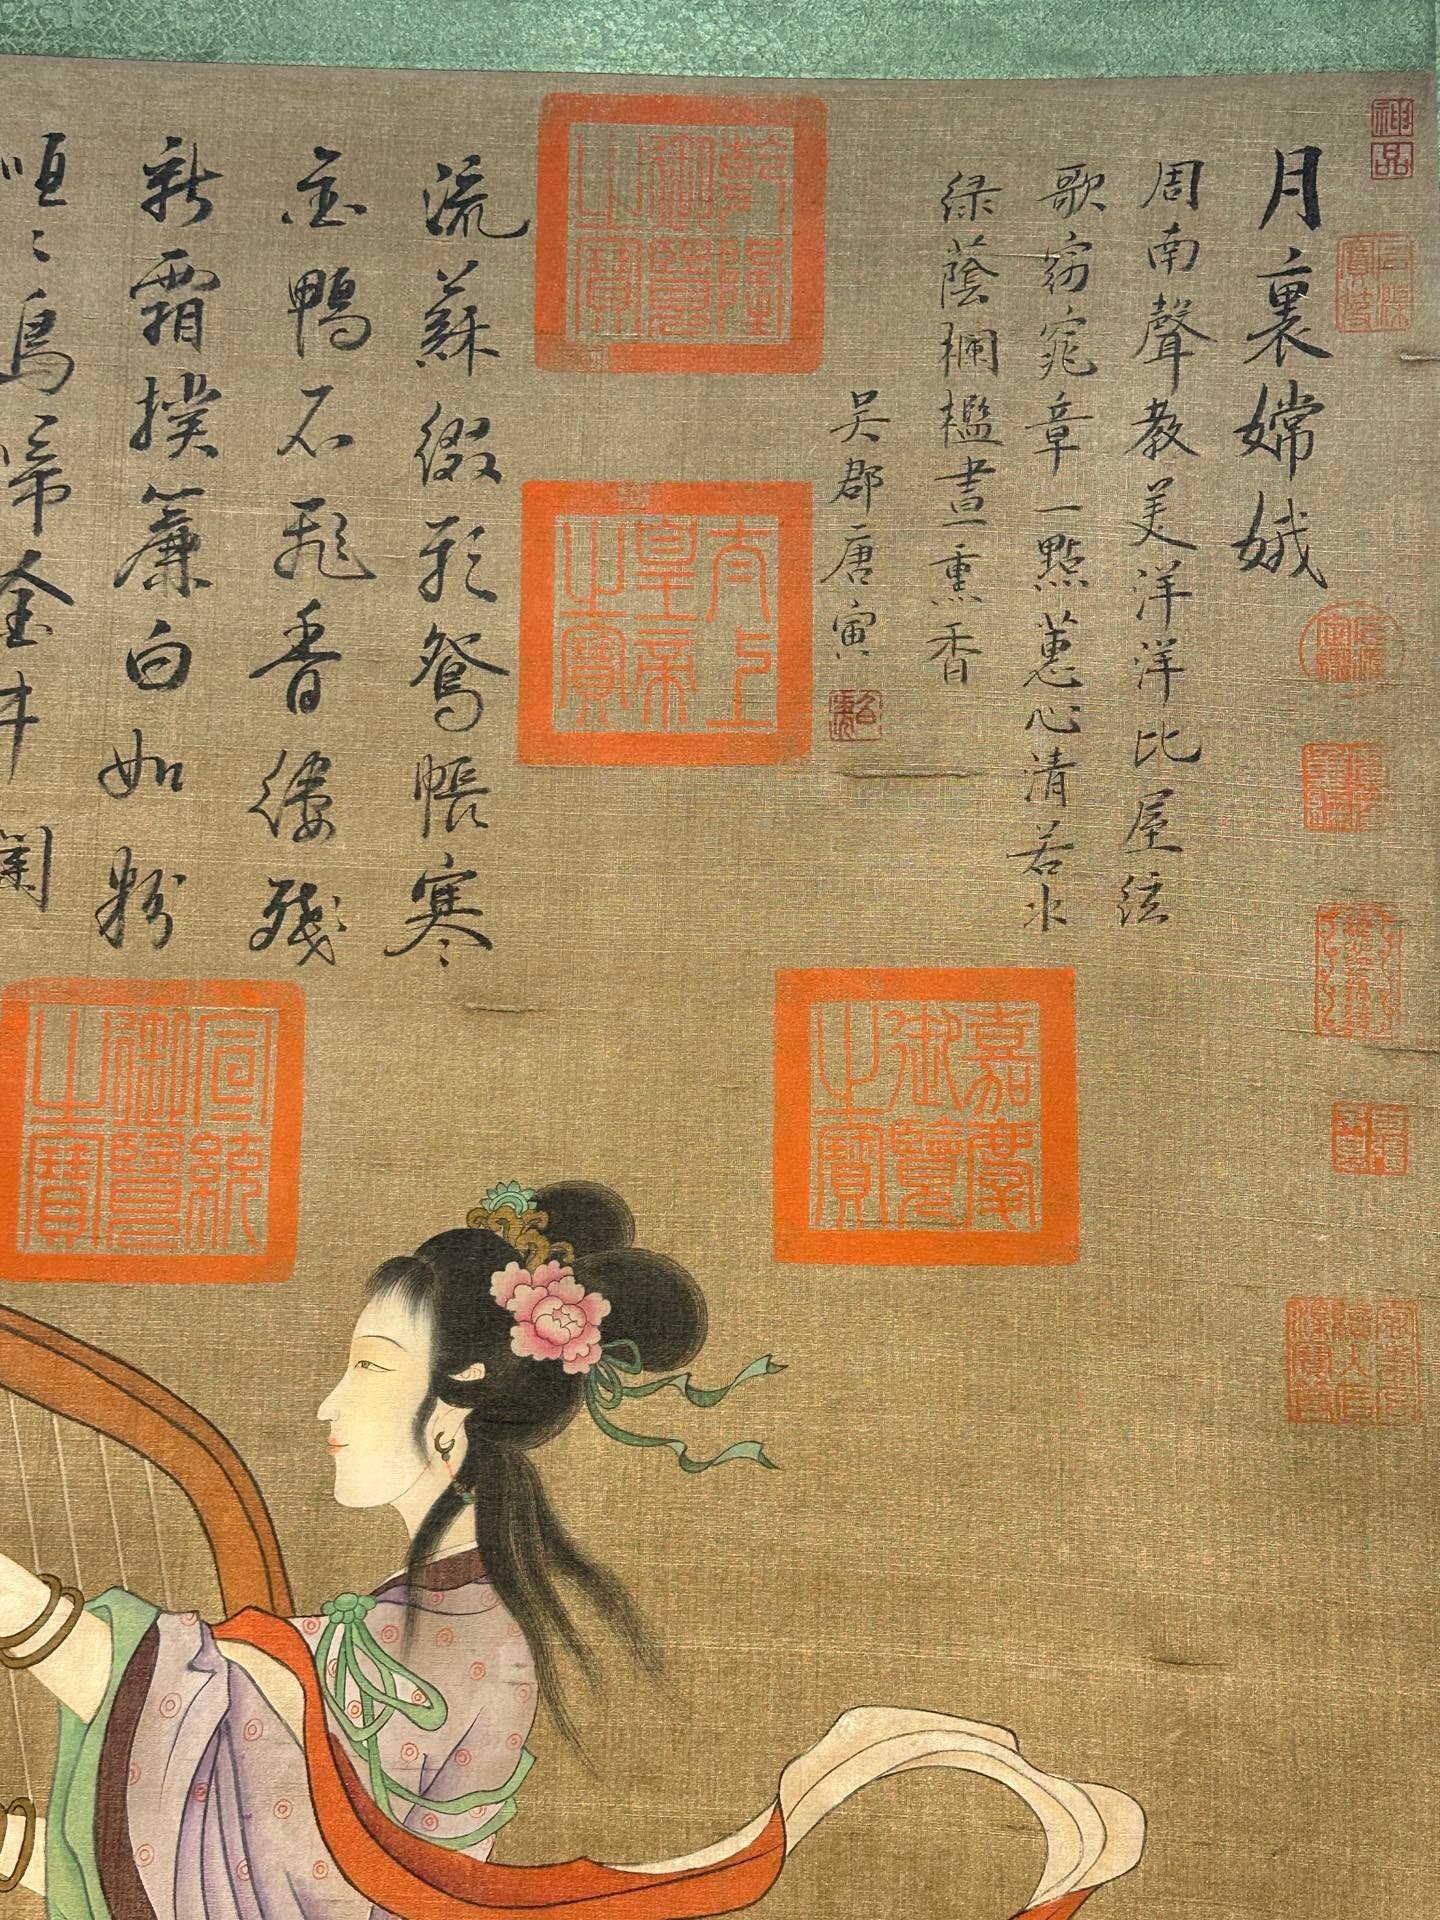 神品
月裏嫦娥
周南聲教美洋洋比屋絃
歌窈窕章一點蕙心清若水
緑蔭欄檻晝熏香
吳郡唐寅
乾隆御覽之寶
太上皇帝之寶
嘉慶御覽之寶
宣統御覽之寶
流蘇綴彩鴛帳寒
金鴨不飛香縷殘
新霜撲簾白如粉
咺〻烏啼金井闌